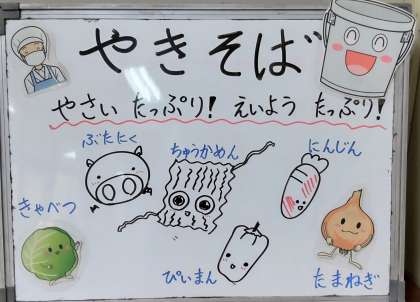 やきそば
やさい たっぷり! えいよう たっぷり!
ぶたにく
ちゅうかめん
にんじん
きゃべつ
ぴぃまん
たまねぎ